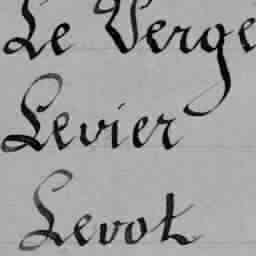 Le Verge
Levier
Levot